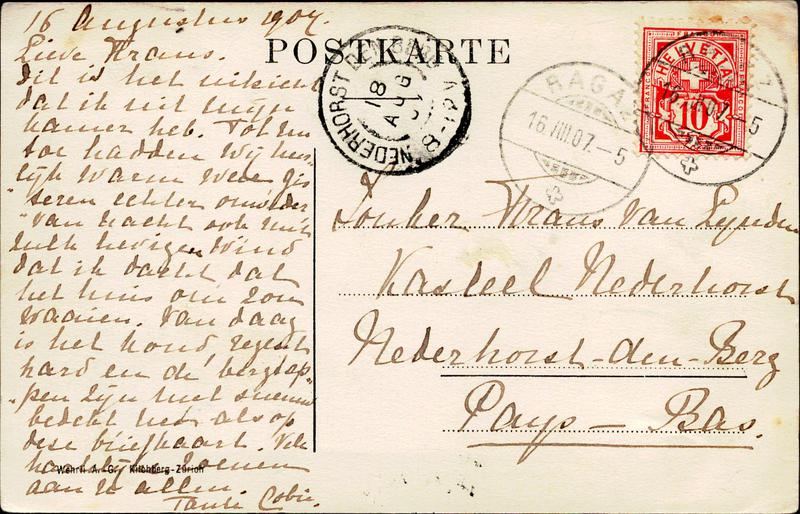 16 Augustus 1907.
Lieve Frans.
Dit is het uitzicht
dat ik uit mijn
kamer heb. Tot nu
toe hadden wij heer-
lijk warm weer gis
"teren echter onweder
"van nacht ook met
zulk hevigen wind
dat ik dacht dat
het huis om zou
waaien. Van daag
is het koud, regent
hard en de bergtop"
"pen zijn met sneeuw
bedekt net als op
deze briefkaart. Vele
hartelijke zoenen
aan U allen.
Tante Cobie.
Wehrli A.-G., Kilchberg-Zürich
POSTKARTE
NEDERHORST DEN BERG
18
AUG
07
8-12V
RAGAZ
16.VIII.07.-5
RAGAZ
16.VIII.07.-5
HELVETIA
10
Jonker Frans van Lynden
Kasteel Nederhorst
Nederhorst-den-Berg
Pays-Bas.